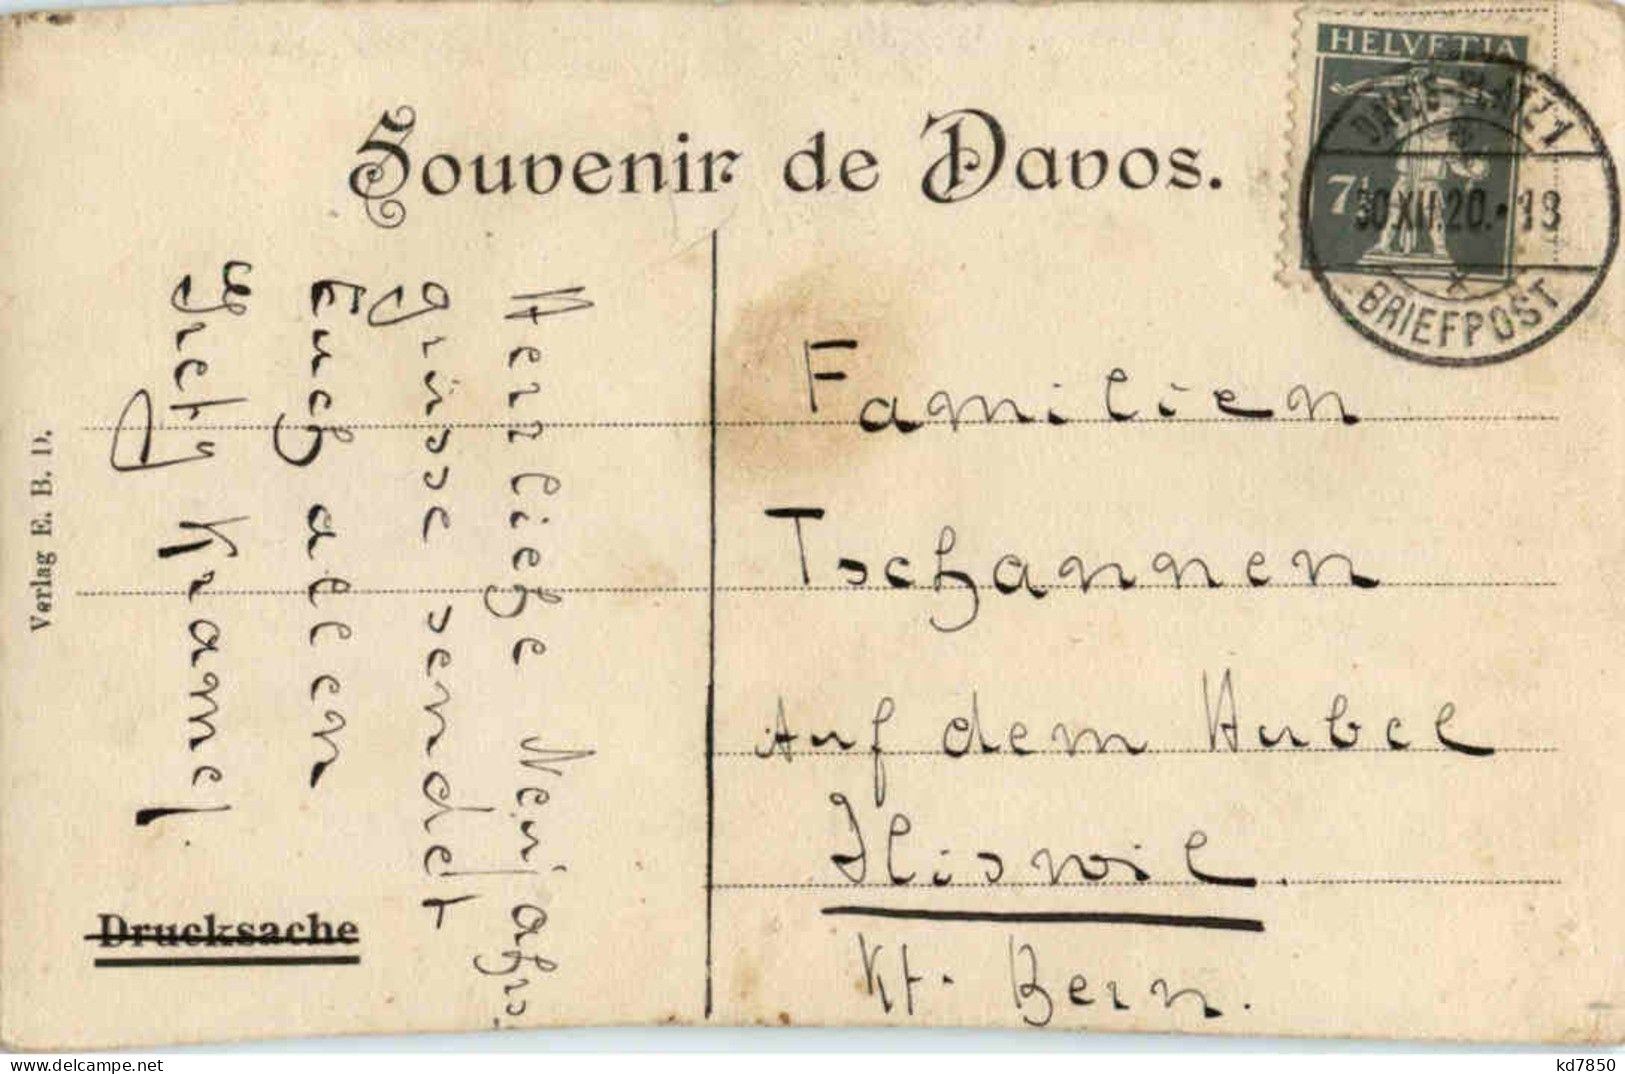 Souvenir de Davos.
HELVETIA
7½
DAVOS-PLATZ 1
30.XII.20.-18
BRIEFPOST
Herzliche Neujahrs
grüsse sendet
Euch allen
Grety Kramel.
Familien
Tschannen
Auf dem Hubel
Iliswil.
Kt. Bern.
Drucksache
Verlag E. B. D.
kd7850